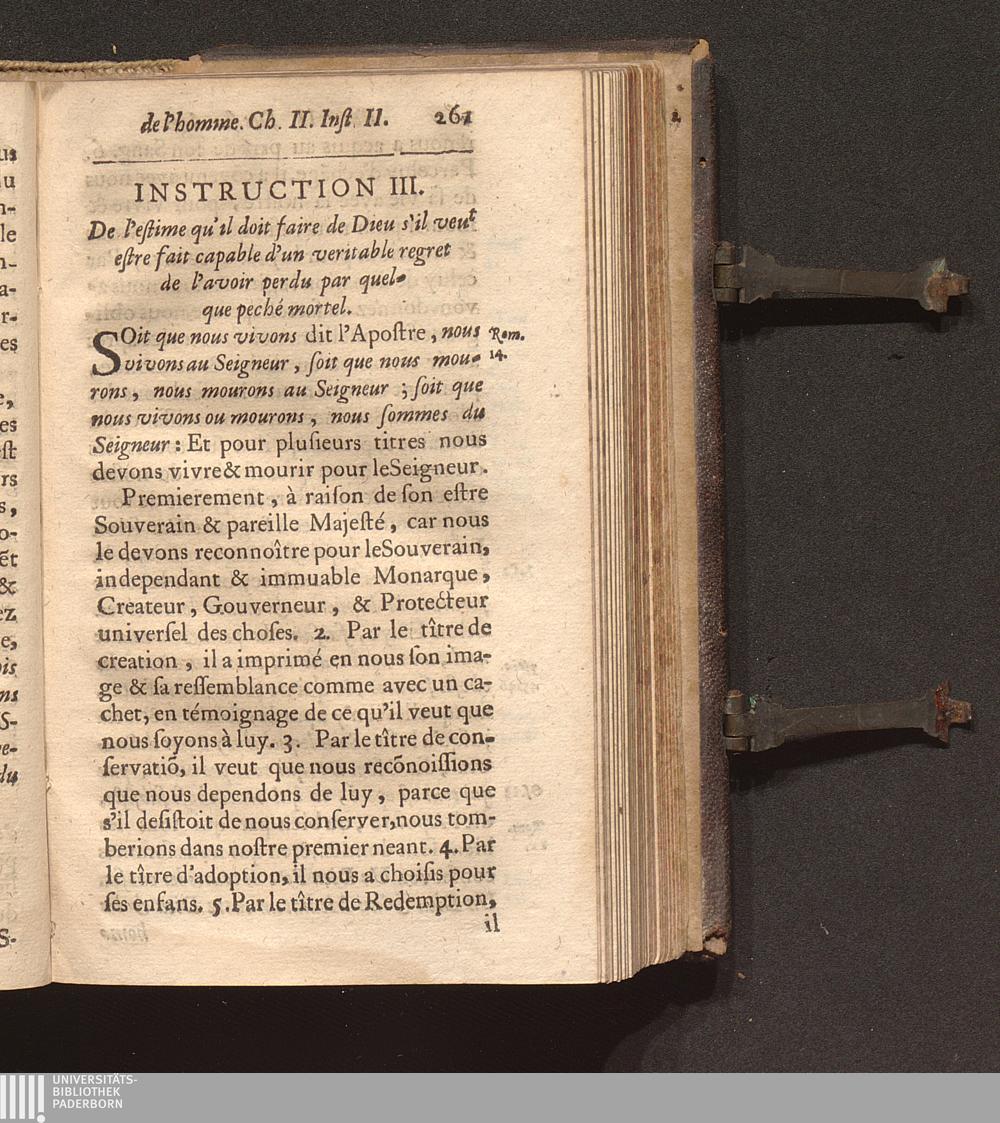 de l'homme. Ch. II. Inſt II. 261
INSTRUCTION III.
De l'eſtime qu'il doit faire de Dieu s'il veut
eſtre fait capable d'un veritable regret
de l'avoir perdu par quel-
que peché mortel.
SOit que nous vivons dit l'Apoſtre, nous
vivons au Seigneur, ſoit que nous mou-
rons, nous mourons au Seigneur ; ſoit que
nous vivons ou mourons, nous ſommes du
Seigneur : Et pour pluſieurs titres nous
devons vivre & mourir pour leSeigneur.
Rom.
14.
Premierement, à raiſon de ſon eſtre
Souverain & pareille Majeſté, car nous
le devons reconnoître pour leSouverain,
independant & immuable Monarque,
Createur, Gouverneur, & Protecteur
univerſel des choſes. 2. Par le tître de
creation, il a imprimé en nous ſon ima-
ge & ſa reſſemblance comme avec un ca-
chet, en témoignage de ce qu'il veut que
nous ſoyons à luy. 3. Par le tître de con-
ſervatiõ, il veut que nous recõnoiſſions
que nous dependons de luy, parce que
s'il deſiſtoit de nous conſerver,nous tom-
berions dans noſtre premier neant. 4. Par
le tître d'adoption, il nous a choiſis pour
ſes enfans. 5. Par le tître de Redemption,
il
us
u
n-
le
n-
a-
r-
es
e,
es
ſt
rs
s,
o-
ẽt
&
ez
e,
is
ns
S-
e-
du
S-
UNIVERSITÄTS-
BIBLIOTHEK
PADERBORN